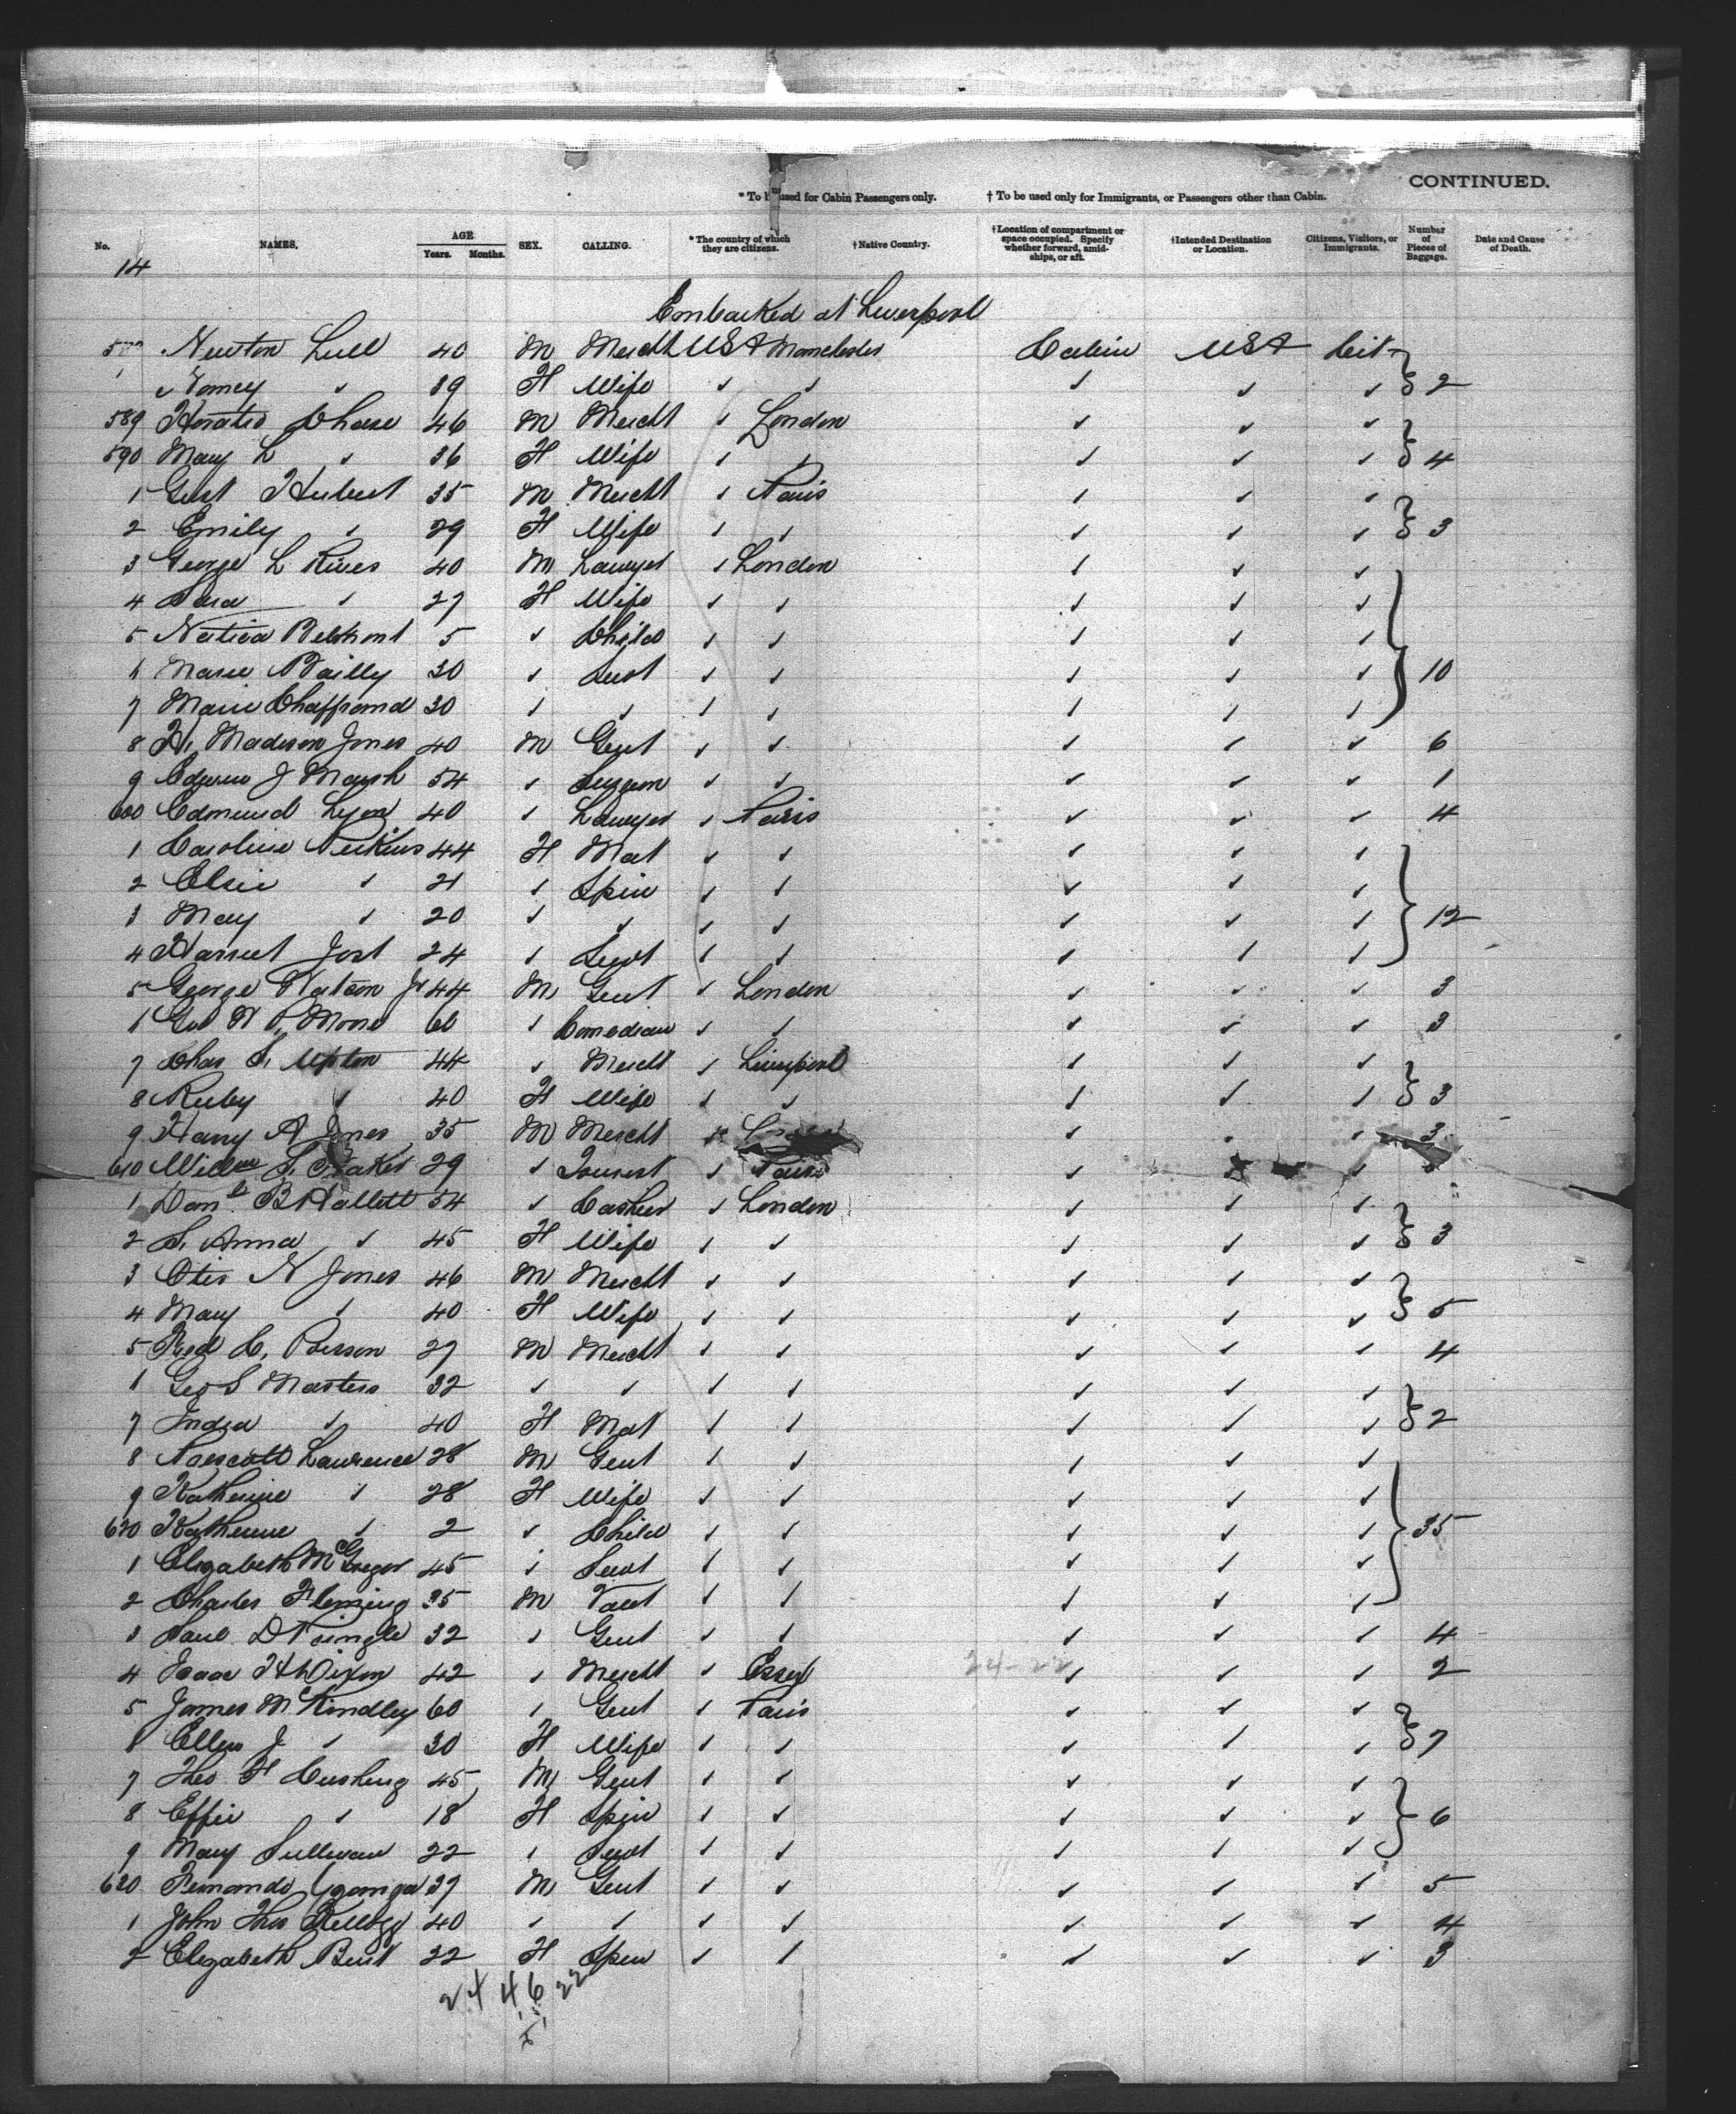 CONTINUED.
* To be used for Cabin Passengers only. † To be used only for Immigrants, or Passengers other than Cabin.
No. NAMES. AGE Years. Months. SEX. CALLING. * The country of which they are citizens. † Native Country. † Location of compartment or space occupied. Specify whether forward, amidships, or aft. † Intended Destination or Location. Citizens, Visitors, or Immigrants. Number of Pieces of Baggage. Date and Cause of Death.
14
Embarked at Liverpool
Newton Lull 40 M Mercht USA Manchester Cabin USA Cit
Nancy ✓ 39 F Wife ✓ ✓ ✓ ✓ ✓ } 2
589 Horatio Chase 46 M Mercht ✓ London ✓ ✓ ✓
590 Mary L ✓ 36 F Wife ✓ ✓ ✓ ✓ ✓ } 4
1 Gust Hubert 35 M Mercht ✓ Paris ✓ ✓ ✓
2 Emily ✓ 29 F Wife ✓ ✓ ✓ ✓ ✓ } 3
3 George L Rives 40 M Lawyer ✓ London ✓ ✓ ✓
4 Sara ✓ 27 F Wife ✓ ✓ ✓ ✓ ✓
5 Natica Belmont 5 ✓ Child ✓ ✓ ✓ ✓ ✓
6 Marie Bailly 30 ✓ Servt ✓ ✓ ✓ ✓ ✓ } 10
7 Marie Chaffrand 30 ✓ ✓ ✓ ✓ ✓ ✓ ✓
8 Madison Jones 40 M Gent ✓ ✓ ✓ ✓ ✓ 6
9 Edwin J Marsh 54 ✓ Surgeon ✓ ✓ ✓ ✓ ✓ 1
600 Edmund Lyon 40 ✓ Lawyer ✓ Paris ✓ ✓ ✓ 4
1 Caroline Perkins 44 F Mat ✓ ✓ ✓ ✓ ✓
2 Elsie ✓ 21 ✓ Spin ✓ ✓ ✓ ✓ ✓
3 May ✓ 20 ✓ ✓ ✓ ✓ ✓ ✓ ✓ } 12
4 Harriet Jost 24 ✓ Servt ✓ ✓ ✓ ✓ ✓
5 George Watson Jr 44 M Gent ✓ London ✓ ✓ ✓ 3
6 Geo W P Moore 60 ✓ Comedian ✓ ✓ ✓ ✓ ✓ 3
7 Chas S. Upton 44 ✓ Mercht ✓ Liverpool ✓ ✓ ✓
8 Ruby ✓ 40 F Wife ✓ ✓ ✓ ✓ ✓ } 3
9 Harry A Jones 35 M Mercht ✓ ✓ ✓ ✓ 3
610 Willm S. 29 ✓ Tourist ✓ Paris ✓ ✓ ✓
1 Danl B Hallett 54 ✓ Cashier ✓ London ✓ ✓ ✓
2 S. Anna ✓ 45 F Wife ✓ ✓ ✓ ✓ ✓ } 3
3 Otis N Jones 46 M Mercht ✓ ✓ ✓ ✓ ✓
4 Mary ✓ 40 F Wife ✓ ✓ ✓ ✓ ✓ } 5
5 Fred C. 27 M Mercht ✓ ✓ ✓ ✓ ✓ 4
6 Geo S Masters 32 ✓ ✓ ✓ ✓ ✓ ✓ ✓
7 India ✓ 40 F Mat ✓ ✓ ✓ ✓ ✓ } 2
8 Prescott Lawrence 28 M Gent ✓ ✓ ✓ ✓ ✓
9 Katherine ✓ 28 F Wife ✓ ✓ ✓ ✓ ✓
620 Katherine ✓ 2 ✓ Child ✓ ✓ ✓ ✓ ✓ } 35
1 Elizabeth McGregor 45 ✓ Servt ✓ ✓ ✓ ✓ ✓
2 Charles Fleming 35 M Valet ✓ ✓ ✓ ✓ ✓
3 Paul D Pringle 32 ✓ Gent ✓ ✓ ✓ ✓ ✓ 4
4 Isaac H Dixon 42 ✓ Mercht ✓ Essex 24-22 ✓ ✓ ✓ 2
5 James McKindley 60 ✓ Gent ✓ Paris ✓ ✓ ✓
6 Ellen J ✓ 30 F Wife ✓ ✓ ✓ ✓ ✓ } 7
7 Theo F Cushing 45 M Gent ✓ ✓ ✓ ✓ ✓
8 Effie ✓ 18 F Spin ✓ ✓ ✓ ✓ ✓ } 6
9 Mary Sullivan 22 ✓ Servt ✓ ✓ ✓ ✓ ✓
630 Fernando 37 M Gent ✓ ✓ ✓ ✓ ✓ 5
1 John Thos Kellogg 40 ✓ ✓ ✓ ✓ ✓ ✓ ✓ 4
2 Elizabeth 22 F Spin ✓ ✓ ✓ ✓ ✓ 3
24 46 22